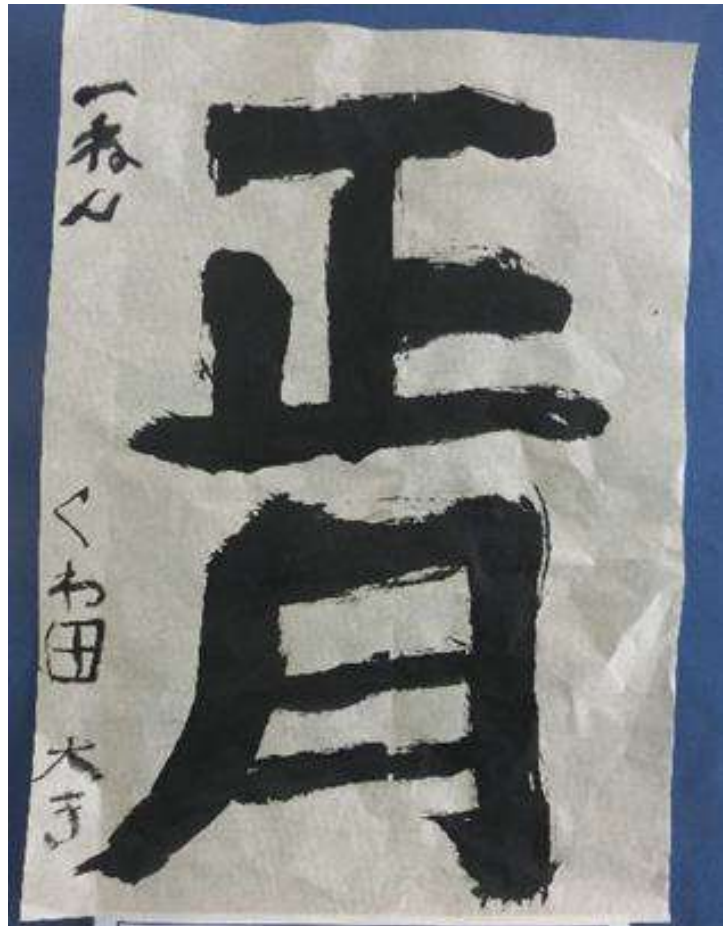 正月
一ねん
くわ田 大き